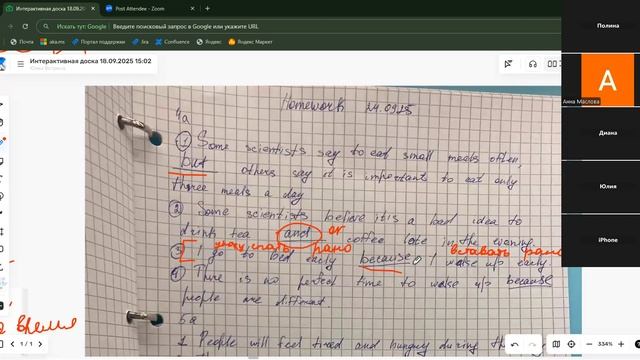 Интерактивная доска 18.09.2025
Post Attendee - Zoom
Искать тут: Google
Введите поисковый запрос в Google или укажите URL
aka.ms
Портал поддержки
Jira
Confluence
Яндекс
Яндекс Маркет
Интерактивная доска 18.09.2025 15:02
Homework 24.0925
4a
① Some scientists say to eat small meals often,
but others say it is important to eat only
three meals a day
② Some scientists believe it is a bad idea to
drink tea and or coffee late in the evening.
рано вставать рано
③ I go to bed early because I wake up early
④ There is no perfect time to wake up because
people are different.
5a
1 People will feel tired and hungry during the
время
1 / 1
334%
Полина
А
Анна Маслова
Диана
Юлия
iPhone